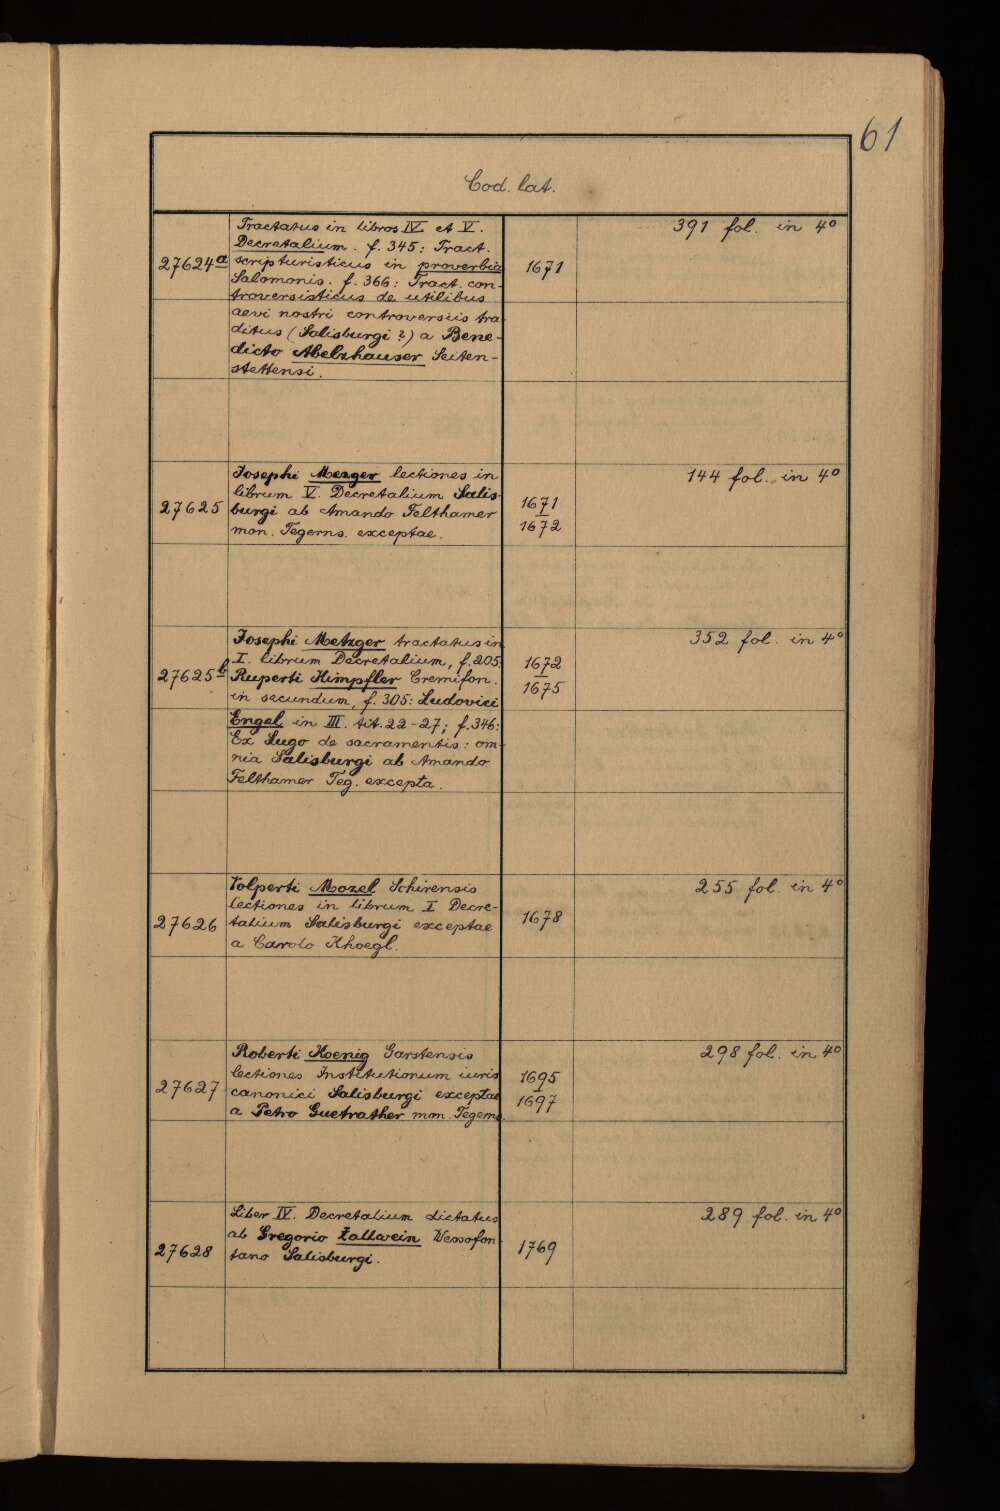 61
Cod. lat.
27624a
Tractatus in libros IV. et V.
Decretalium. f. 345: Tract.
scripturisticus in proverbia
Salomonis. f. 366: Tract. con-
troversisticus de utilibus
aevi nostri controversiis tra
ditus (Salisburgi?) a Bene-
dicto Abelzhauser Seiten-
stettensi.
1671
391 fol. in 4°
27625
Josephi Mezger lectiones in
librum V. Decretalium Salis-
burgi ab Amando Felthamer
mon. Tegerns. exceptae.
1671
1672
144 fol. in 4°
27625b
Josephi Metzger tractatus in
I. librum Decretalium, f. 205:
Ruperti Kimpfler Cremifon.
in secundum, f. 305: Ludovici
Engel in III. tit. 22-27; f. 346:
Ex Lugo de sacramentis: om-
nia Salisburgi ab Amando
Felthamer Teg. excepta.
1672
1675
352 fol. in 4°
27626
Volperti Mozel Schirensis
lectiones in librum I Decre-
talium Salisburgi exceptae
a Carolo Khoegl.
1678
255 fol. in 4°
27627
Roberti Koenig Garstensis
lectiones Institutionum iuris
canonici Salisburgi exceptae
a Petro Guetrather mon. Tegerns.
1695
1697
298 fol. in 4°
27628
Liber IV. Decretalium dictatus
ab Gregorio Zallwein Wessofon-
tano Salisburgi.
1769
289 fol. in 4°